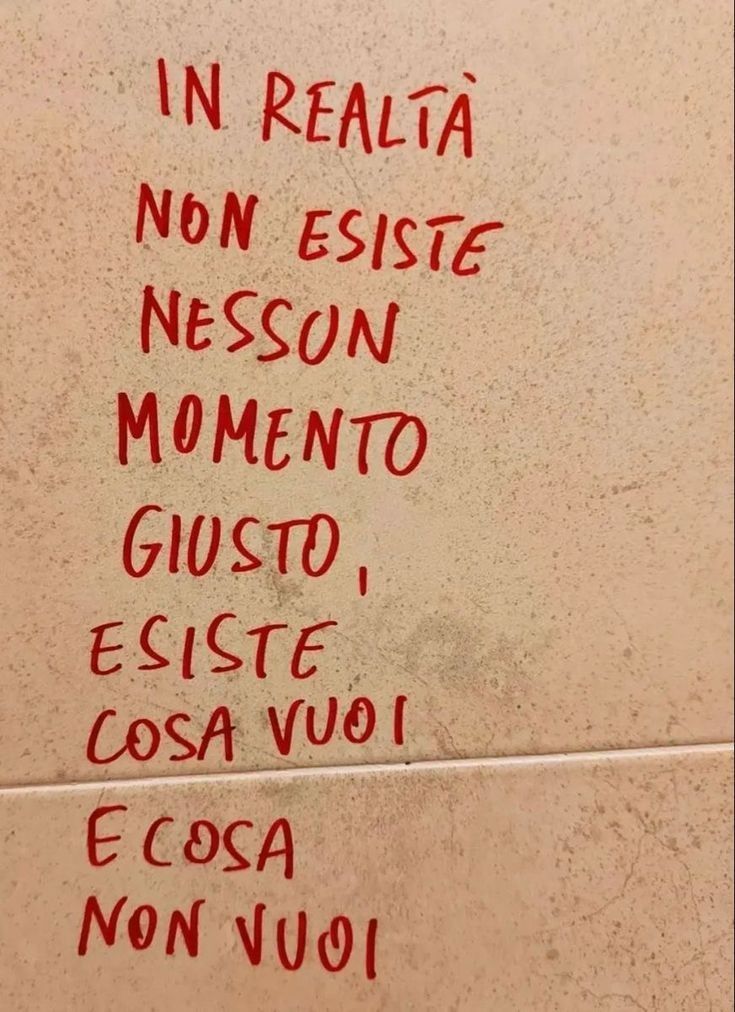 IN REALTÀ
NON ESISTE
NESSUN
MOMENTO
GIUSTO,
ESISTE
COSA VUOI
E COSA
NON VUOI